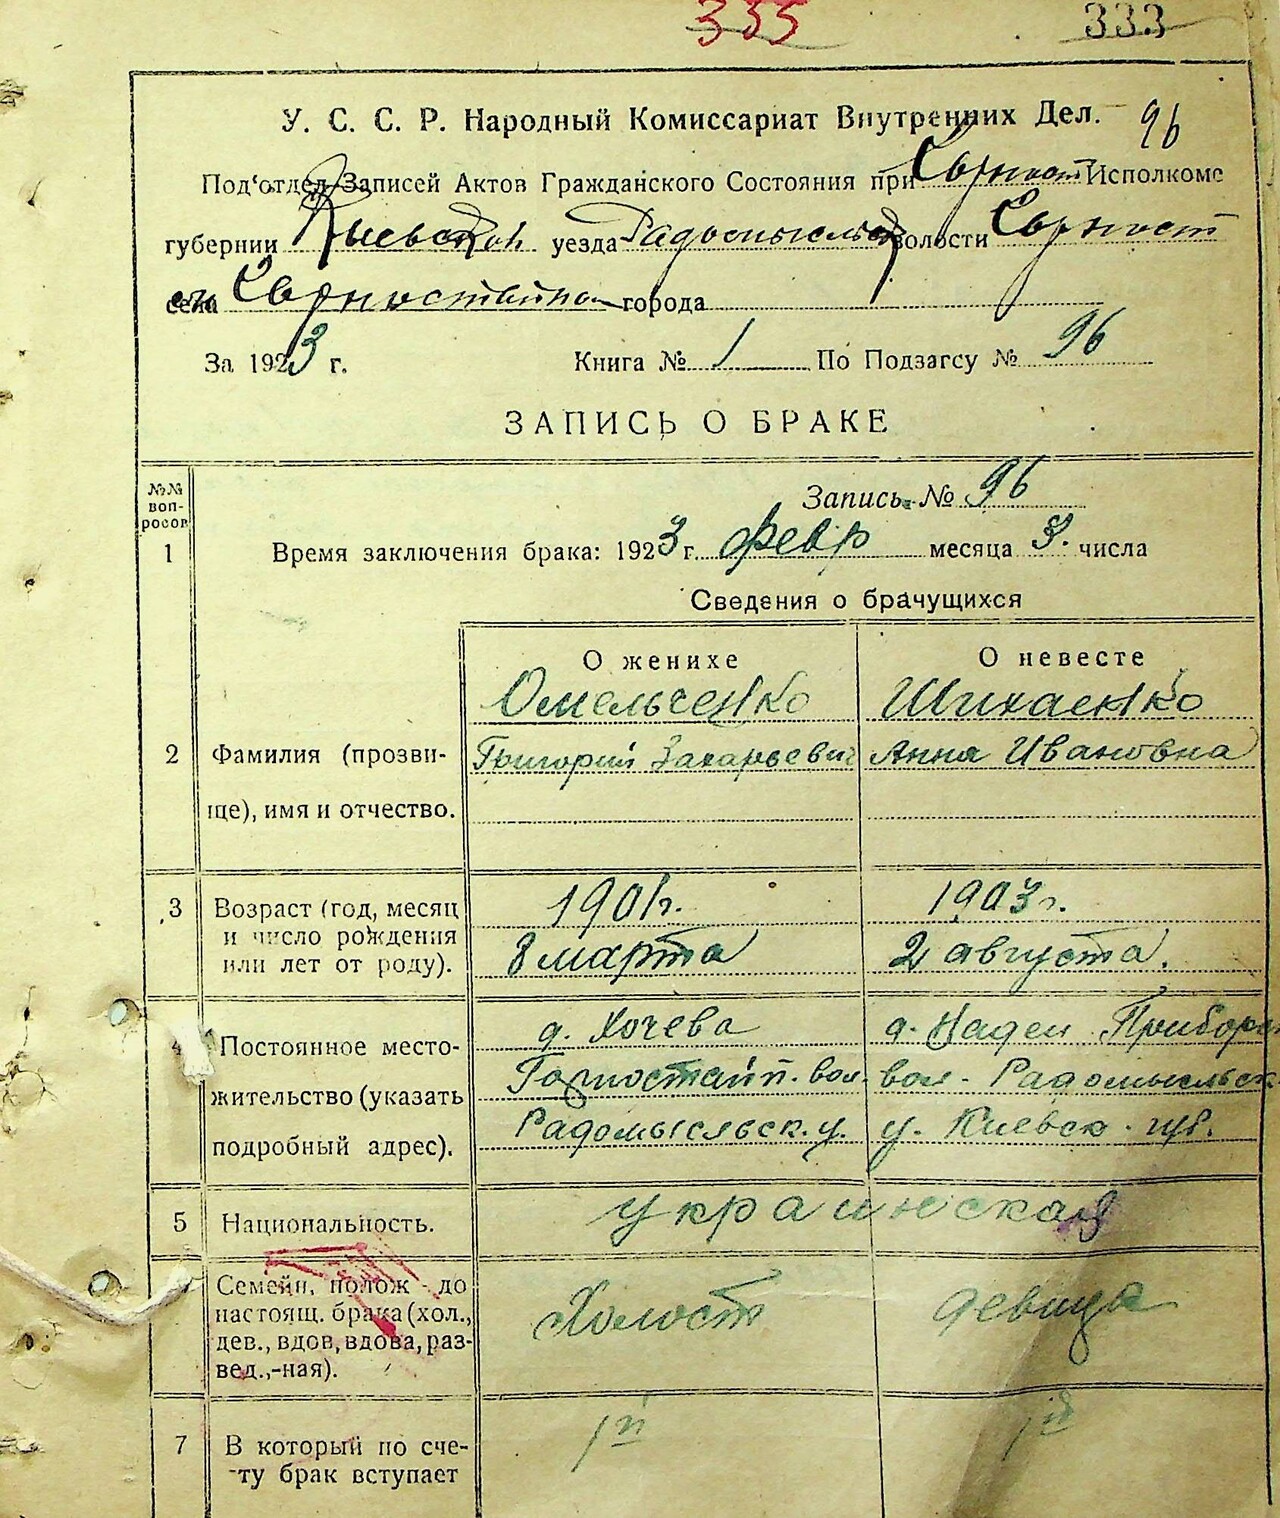 335 333
У. С. С. Р. Народный Комиссариат Внутренних Дел. 96
Под'отдел Записей Актов Гражданского Состояния при Горност Исполкоме
губернии Киевской уезда Радомысльск волости Горност
села Горностайпол города
За 1923 г. Книга № 1 По Подзагсу № 96
ЗАПИСЬ О БРАКЕ
№№ вопросов
Запись № 96
1 Время заключения брака: 1923 г. февр месяца 3. числа
Сведения о брачущихся
О женихе О невесте
Омельченко
2 Фамилия (прозви- Григорий Захарьевич Анна Ивановна
ще), имя и отчество.
3 Возраст (год, месяц 1901г. 1903г.
и число рождения 8 марта 2 августа.
или лет от роду).
4 Постоянное место- д. Хочева д.
жительство (указать Горностайп. вол. вол. Радомысльск.
подробный адрес). Радомысльск. у. у. Киевск. губ.
5 Национальность. украинская
Семейн. полож - до
настоящ. брака (хол., Холост девица
дев., вдов, вдова, раз-
вед.,-ная).
7 В который по сче- 1й 1й
ту брак вступает